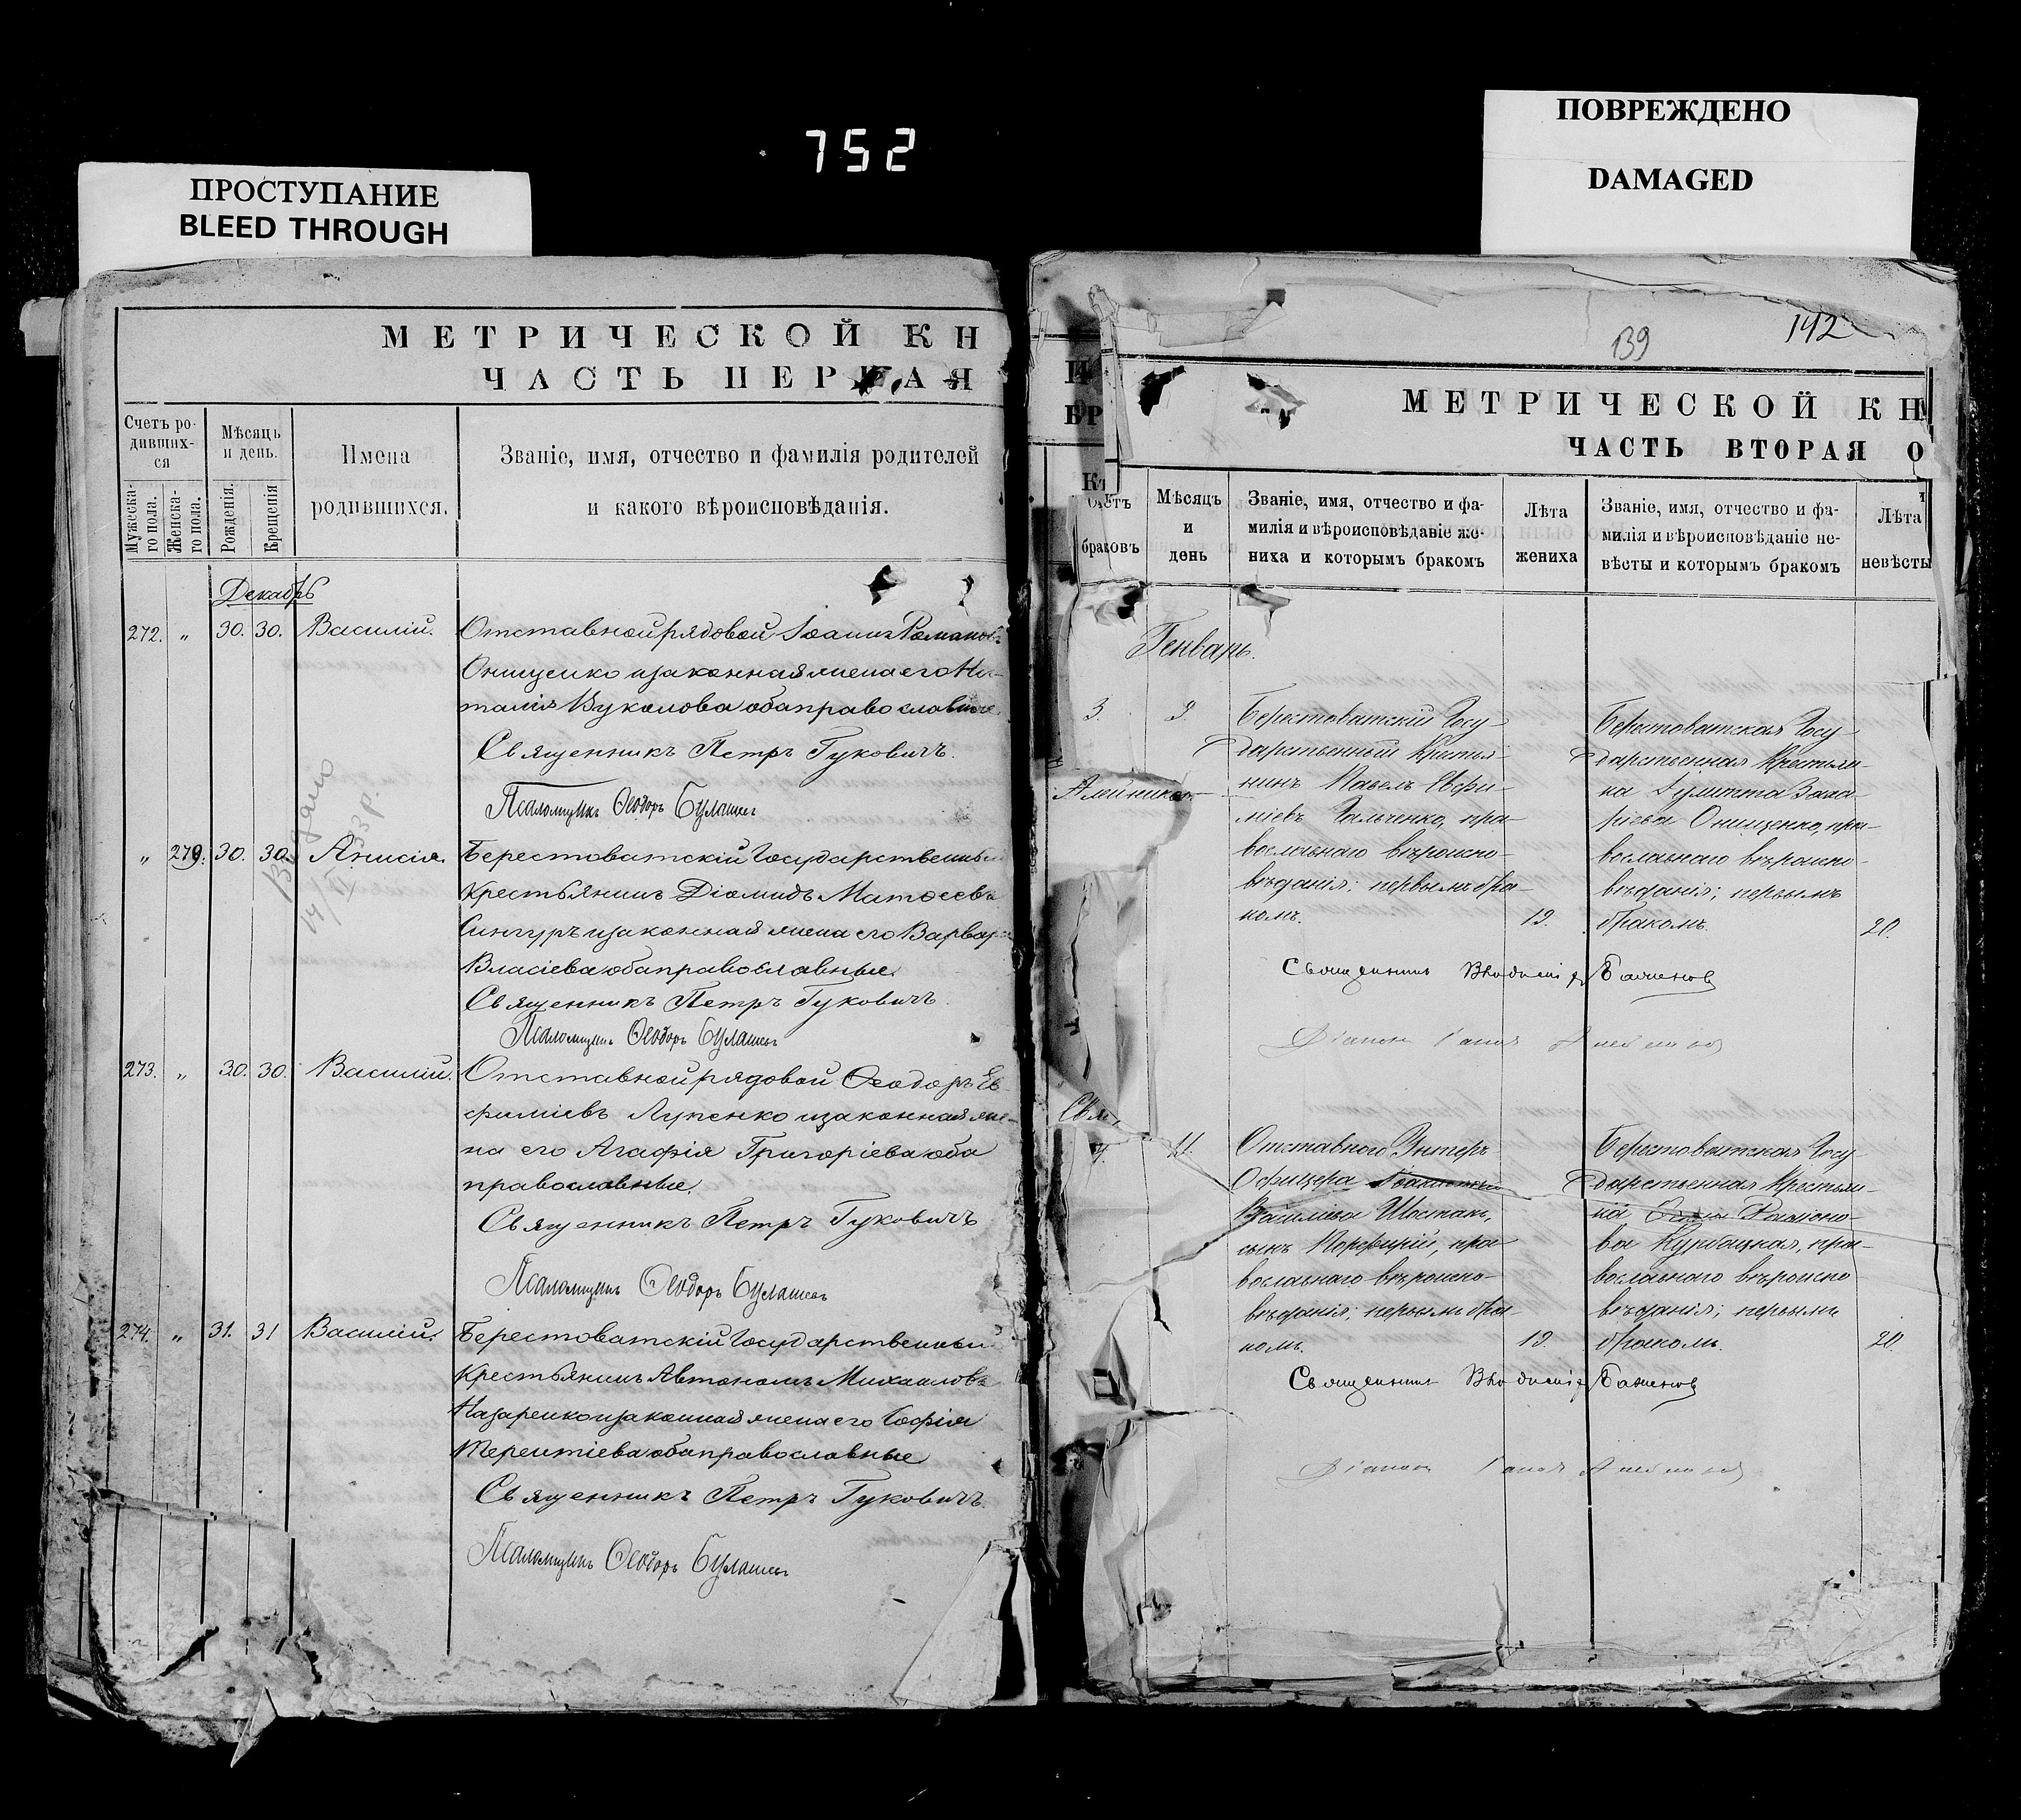 752
ПРОСТУПАНИЕ
BLEED THROUGH
ПОВРЕЖДЕНО
DAMAGED
МЕТРИЧЕСКОЙ КН
ЧАСТЬ ПЕРВАЯ
Счетъ ро-
дивших-
ся
Мужеска-
го пола.
Женска-
го пола.
Мѣсяцъ
и день.
Рожденія.
Крещенія
Имена
родившихся.
Званіе, имя, отчество и фамилія родителей
и какого вѣроисповѣданія.
Декабрь
272. „ 30. 30. Василій. Отставной рядовой Іоаннъ Романовъ
Онищенко и законная жена его На-
талія Вуколова оба православные
Священникъ Петръ Гуковичъ.
Псаломщикъ Ѳеодоръ Булашевъ
Выдано
14/II 33 р.
„ 279. 30. 30. Анисія. Берестоватскій Государственный
крестьянинъ Діомидъ Матѳеевъ
Сингуръ и законная жена его Варвара
Власіева оба православные.
Священникъ Петръ Гуковичъ.
Псаломщикъ Ѳеодоръ Булашевъ
273. „ 30. 30. Василій. Отставной рядовой Ѳеодоръ Ев-
фиміевъ Лупенко и законная же-
на его Агафія Григоріева оба
православные.
Священникъ Петръ Гуковичъ
Псаломщикъ Ѳеодоръ Булашевъ
274. „ 31. 31 Василій. Берестоватскій Государственный
крестьянинъ Автономъ Михаиловъ
Назаренко и законная жена его Софія
Терентіева оба православные
Священникъ Петръ Гуковичъ.
Псаломщикъ Ѳеодоръ Булашевъ
139
142
И
БР
Къ
МЕТРИЧЕСКОЙ КН
ЧАСТЬ ВТОРАЯ О
Счетъ
браковъ
Мѣсяцъ
и
день
Званіе, имя, отчество и фа-
милія и вѣроисповѣданіе же-
ниха и которымъ бракомъ
Лѣта
жениха
Званіе, имя, отчество и фа-
милія и вѣроисповѣданіе не-
вѣсты и которымъ бракомъ
Лѣта
невѣсты
Генварь.
3. 9.
Берестоватскій Госу-
дарственный Крестья-
нинъ Павелъ Евфи-
міевъ Гальченко, пра-
вославнаго вѣроиспо-
вѣданія; первымъ бра-
комъ.
19.
Берестоватская Госу-
дарственная Крестьян-
ка Іулитта Заха-
ріева Онищенко, пра-
вославнаго вѣроиспо-
вѣданія; первымъ
бракомъ.
20.
Алейников
Священникъ Владиміръ Баженов
Діаконъ Іаков Алейников
Свящ
4. 11.
Отставного Унтеръ
Офицера
Василіева Шостакъ,
сынъ Порфирій, пра-
вославнаго вѣроиспо-
вѣданія; первымъ бра-
комъ.
19.
Берестоватская Госу-
дарственная Крестьян-
ка
ва Курбацкая, пра-
вославнаго вѣроиспо-
вѣданія; первымъ
бракомъ.
20.
Священникъ Владиміръ Баженов
Діаконъ Іаков Алейников